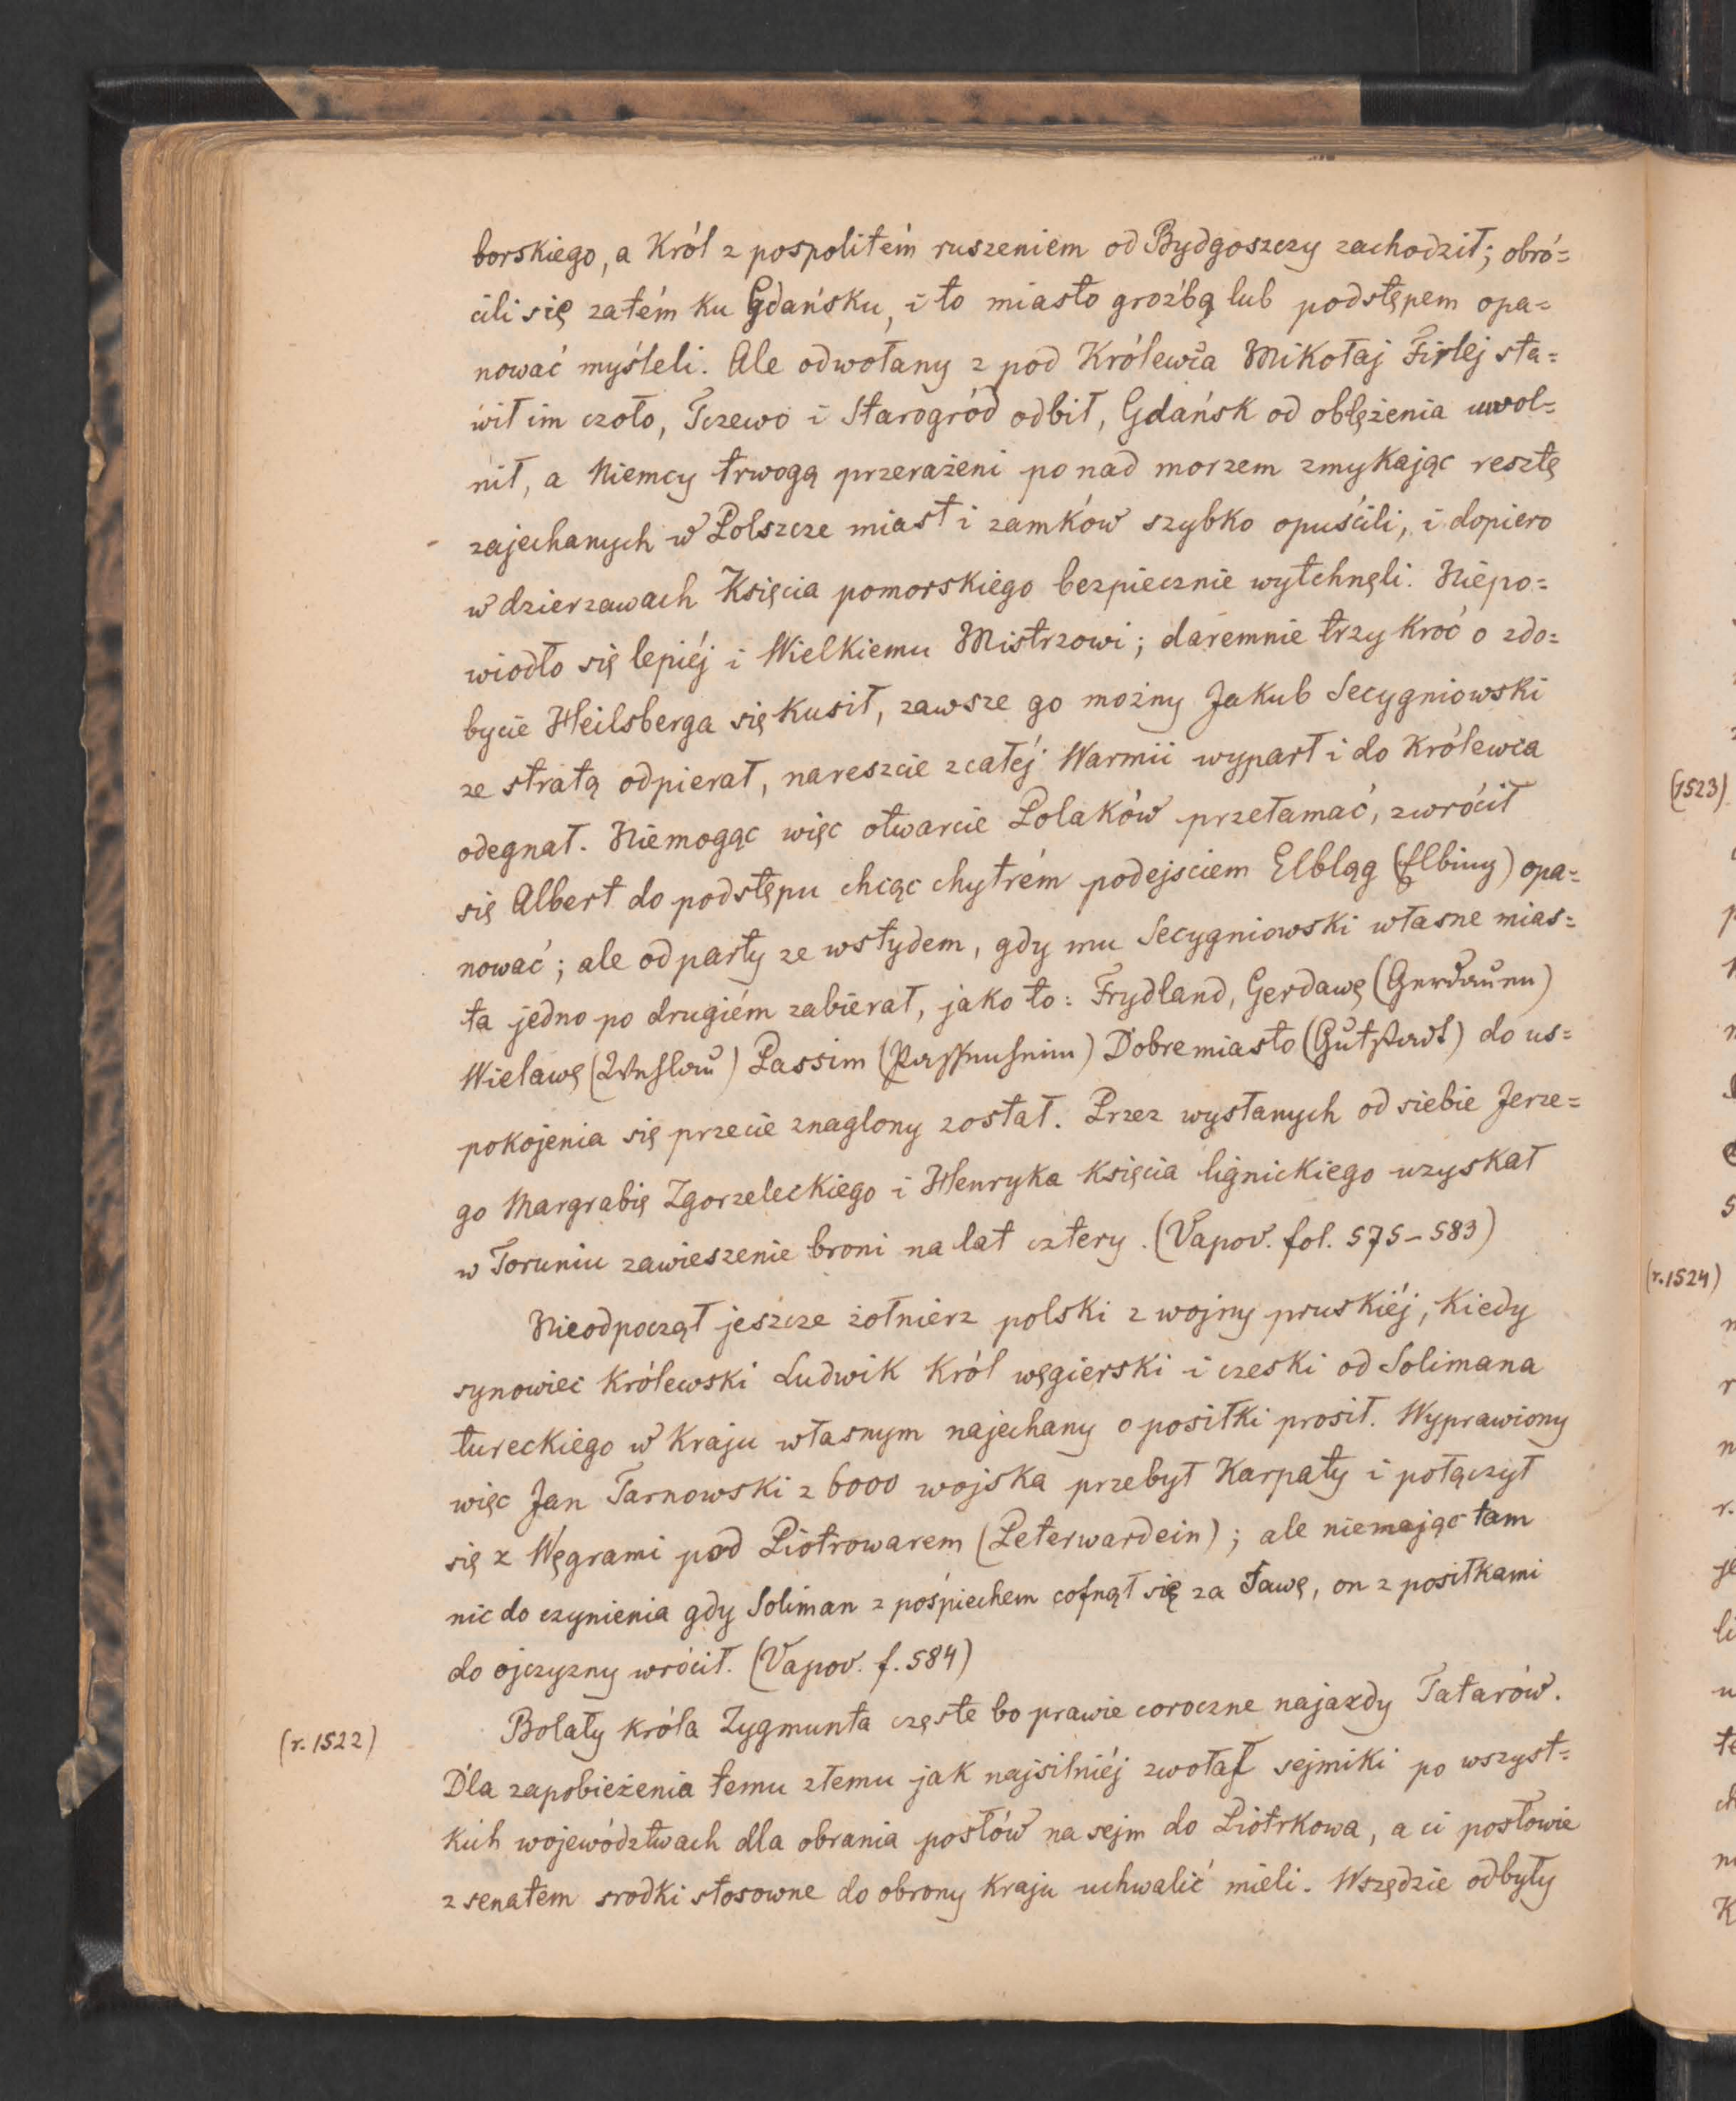 borskiego, a Król z pospolitém ruszeniem od Bydgoszczy zachodził; obró=
cili się zatém ku Gdańsku, i to miasto groźbą lub podstępem opa=
nować myśleli. Ale odwołany z pod Królewca Mikołaj Firlej sta=
wił im czoło, Tczewo i Starogród odbił, Gdańsk od oblężenia uwol=
nił, a Niemcy trwogą przerażeni ponad morzem zmykając resztę
zajechanych w Polszcze miast i zamków szybko opuścili, i dopiero
w dzierzawach Księcia pomorskiego bezpiecznie wytchnęli. Niepo=
wiodło się lepiéj i Wielkiemu Mistrzowi; daremnie trzy kroć o zdo=
bycie Heilsberga się kusił, zawsze go możny Jakub Secygniowski
ze stratą odpierał, nareszcie z całéj Warmii wyparł i do Królewca
odegnał. Niemogąc więc otwarcie Polaków przełamać, zwrócił
się Albert do podstępu chcąc chytrém podejściem Elbląg (Elbing) opa=
nować; ale odparty ze wstydem, gdy mu Secygniowski własne mias=
ta jedno po drugiém zabierał, jako to: Frydland, Gerdawę (Gerdauen)
Wielawę (Wehlau) Passim Dobremiasto (Gutstadt) do us=
pokojenia się przecie znaglony został. Przez wysłanych od siebie Jerze=
go Margrabię Zgorzeleckiego i Henryka Księcia lignickiego uzyskał
w Toruniu zawieszenie broni na lat cztery. (Vapov. fol. 575-583)
Nieodpoczął jeszcze żołnierz polski z wojny pruskiéj, kiedy
synowiec Królewski Ludwik Król węgierski i czeski od Solimana
tureckiego w kraju własnym najechany o posiłki prosił. Wyprawiony
więc Jan Tarnowski z 6000 wojska przebył Karpaty i połączył
się z Węgrami pod Piotrowarem (Peterwardein); ale niemając tam
nic do czynienia gdy Soliman z pośpiechem cofnął się za Sawę, on z posiłkami
do ojczyzny wrócił. (Vapov. f. 584)
(r. 1522)
Bolały króla Zygmunta częste bo prawie coroczne najazdy Tatarów.
Dla zapobieżenia temu złemu jak najsilniéj zwołał sejmiki po wszyst=
kich województwach dla obrania posłów na sejm do Piotrkowa, a ci posłowie
z senatem srodki stosowne do obrony kraju uchwalić mieli. Wszędzie odbyły
(1523)
(r. 1524)